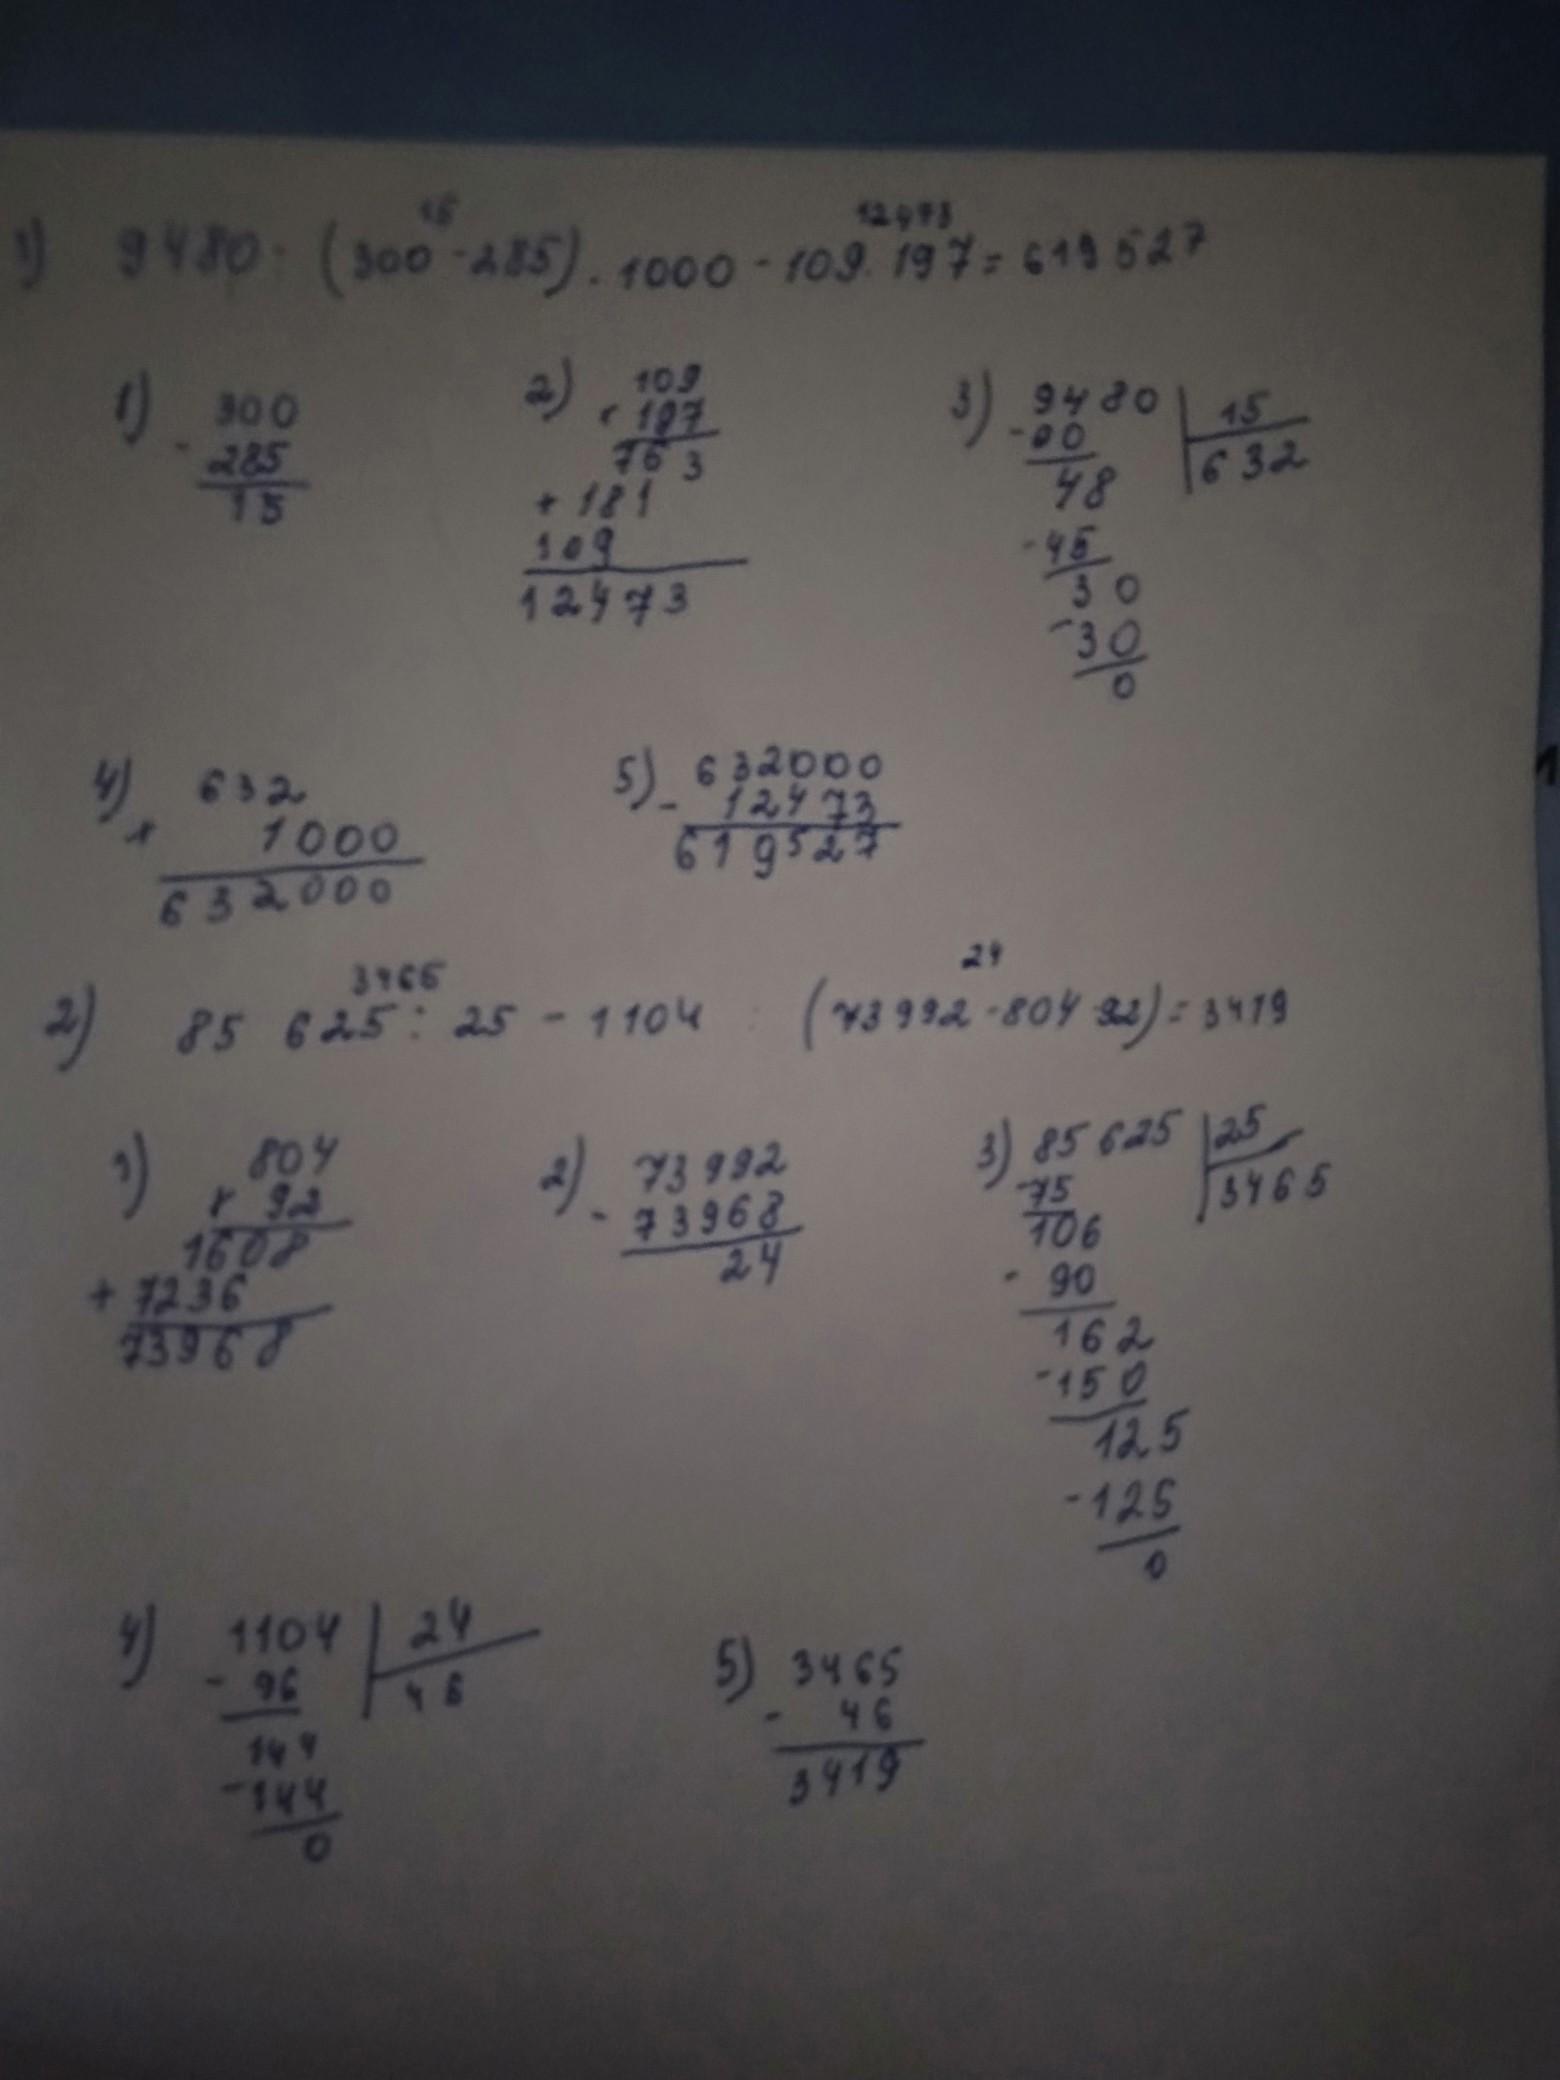 1) 9480 : (300 - 285) · 1000 - 109 · 197 = 619527
15
12473
1) 300
- 285
15
2) 109
× 197
763
+ 181
109
12473
3) 9480 | 15
- 90
632
48
- 45
30
- 30
0
4) 632
× 1000
632000
5) 632000
- 12473
619527
2) 85 625 : 25 - 1104 : (73992 - 804 92) = 3419
3465
24
1) 804
× 92
1608
+ 7236
73968
2) 73992
- 73968
24
3) 85 625 | 25
- 75
3465
106
- 90
162
- 150
125
- 125
0
4) 1104 | 24
- 96
46
144
- 144
0
5) 3465
- 46
3419